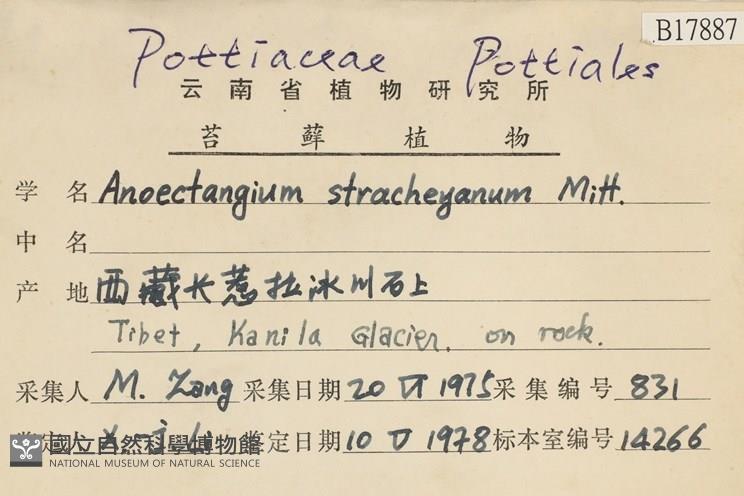 B17887
Pottiaceae Pottiales
云南省植物研究所
苔藓植物
学名 Anoectangium stracheyanum Mitt.
中名
产地 西藏卡惹拉冰川石上
Tibet, Kanila Glacier. on rock.
采集人 M. Zang 采集日期 20 VI 1975 采集编号 831
鉴定日期 10 V 1978 标本室编号 14266
國立自然科學博物館
NATIONAL MUSEUM OF NATURAL SCIENCE